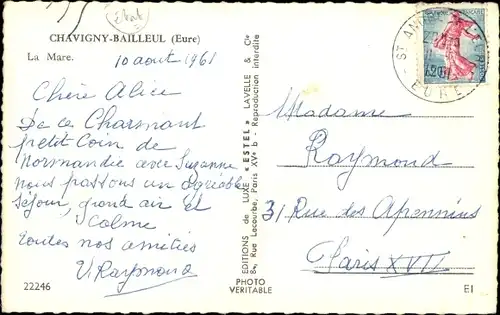 État
CHAVIGNY-BAILLEUL (Eure)
La Mare.
10 aout 1961
Chère Alice
De ce Charmant
petit Coin de
Normandie avec Suzanne
nous passons un agréable
séjour, grand air et
Calme
toutes nos amitiés
V. Raymond
22246
PHOTO
VERITABLE
EDITIONS de LUXE « ESTEL » LAVELLE & Cie
8, Rue Lecourbe, Paris XVe b - Reproduction interdite
FRANÇAISE
0,20
ST ANDRE
EURE
Madame
Raymond
31 Rue des Apennins
Paris XVII
EI